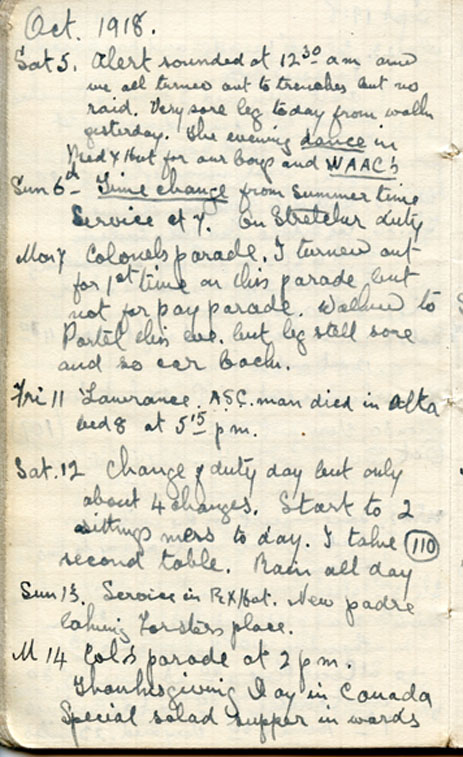 Oct. 1918.
Sat 5. Alert sounded at 12 30 am and
we all turned out to trenches but no
raid. Very sore leg today from walk
yesterday. The evening dance in
Hut for our boys and WAAC's
Sun 6th Time change from summer time
Service at 7. On Stretcher duty
Mon 7 Colonels parade. I turned out
for 1st time on this parade but
not for pay parade. Walked to
this eve. but leg still sore
and so car back.
Fri 11 Lawrance. A.S.C. man died in Alta
bed 8 at 5 15 p m.
Sat. 12 Change of duty day but only
about 4 changes. Start to 2
sittings mess to day. I take 110
second table. Rain all day
Sun 13. Service in Hut. New padre
taking Forsters place.
M 14 Col's parade at 2 p m.
Thanksgiving Day in Canada
Special salad supper in wards